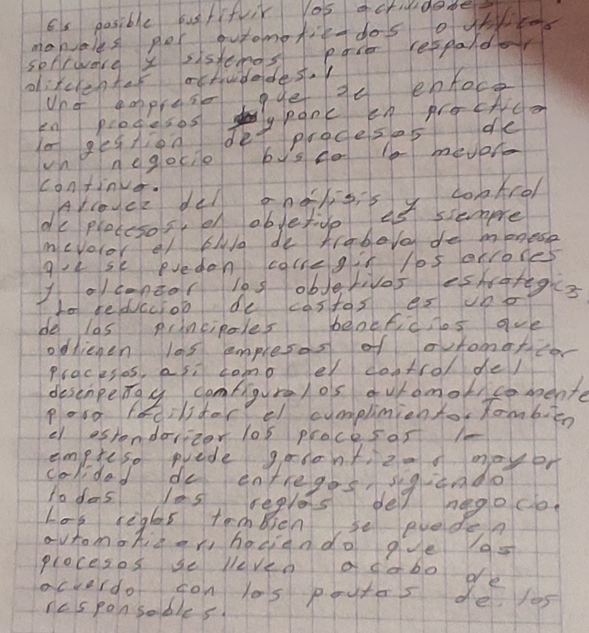 Es posible sustituir los actividades
manuales por automatizados o utilizar
software y sistemas para respaldar
diferentes actividades.
Una empresa que se enfoca
en procesos y pone en practica
la gestión de procesos de
un negocio busca la mejora
continua.
Atravez del análisis y control
de procesos, el objetivo es siempre
mejorar el flujo de trabajo de manera
que se puedan corregir los errores
y alcanzar los objetivos estrategics
la reducción de costos es uno
de los principales beneficios que
odtienen las empresas al automatizar
procesos, asi como el control del
desenpeño y configuralos automaticamente
para facilitar el cumplimiento. Tambien
al estandarizar los procesos la
empresa puede garantizar mayor
calidad de entregas, sigiendo
todas las reglas del negocio.
Las reglas tambien se pueden
automatizar, haciendo que los
procesos se lleven a cabo de
acuerdo con las pautas de los
responsables.